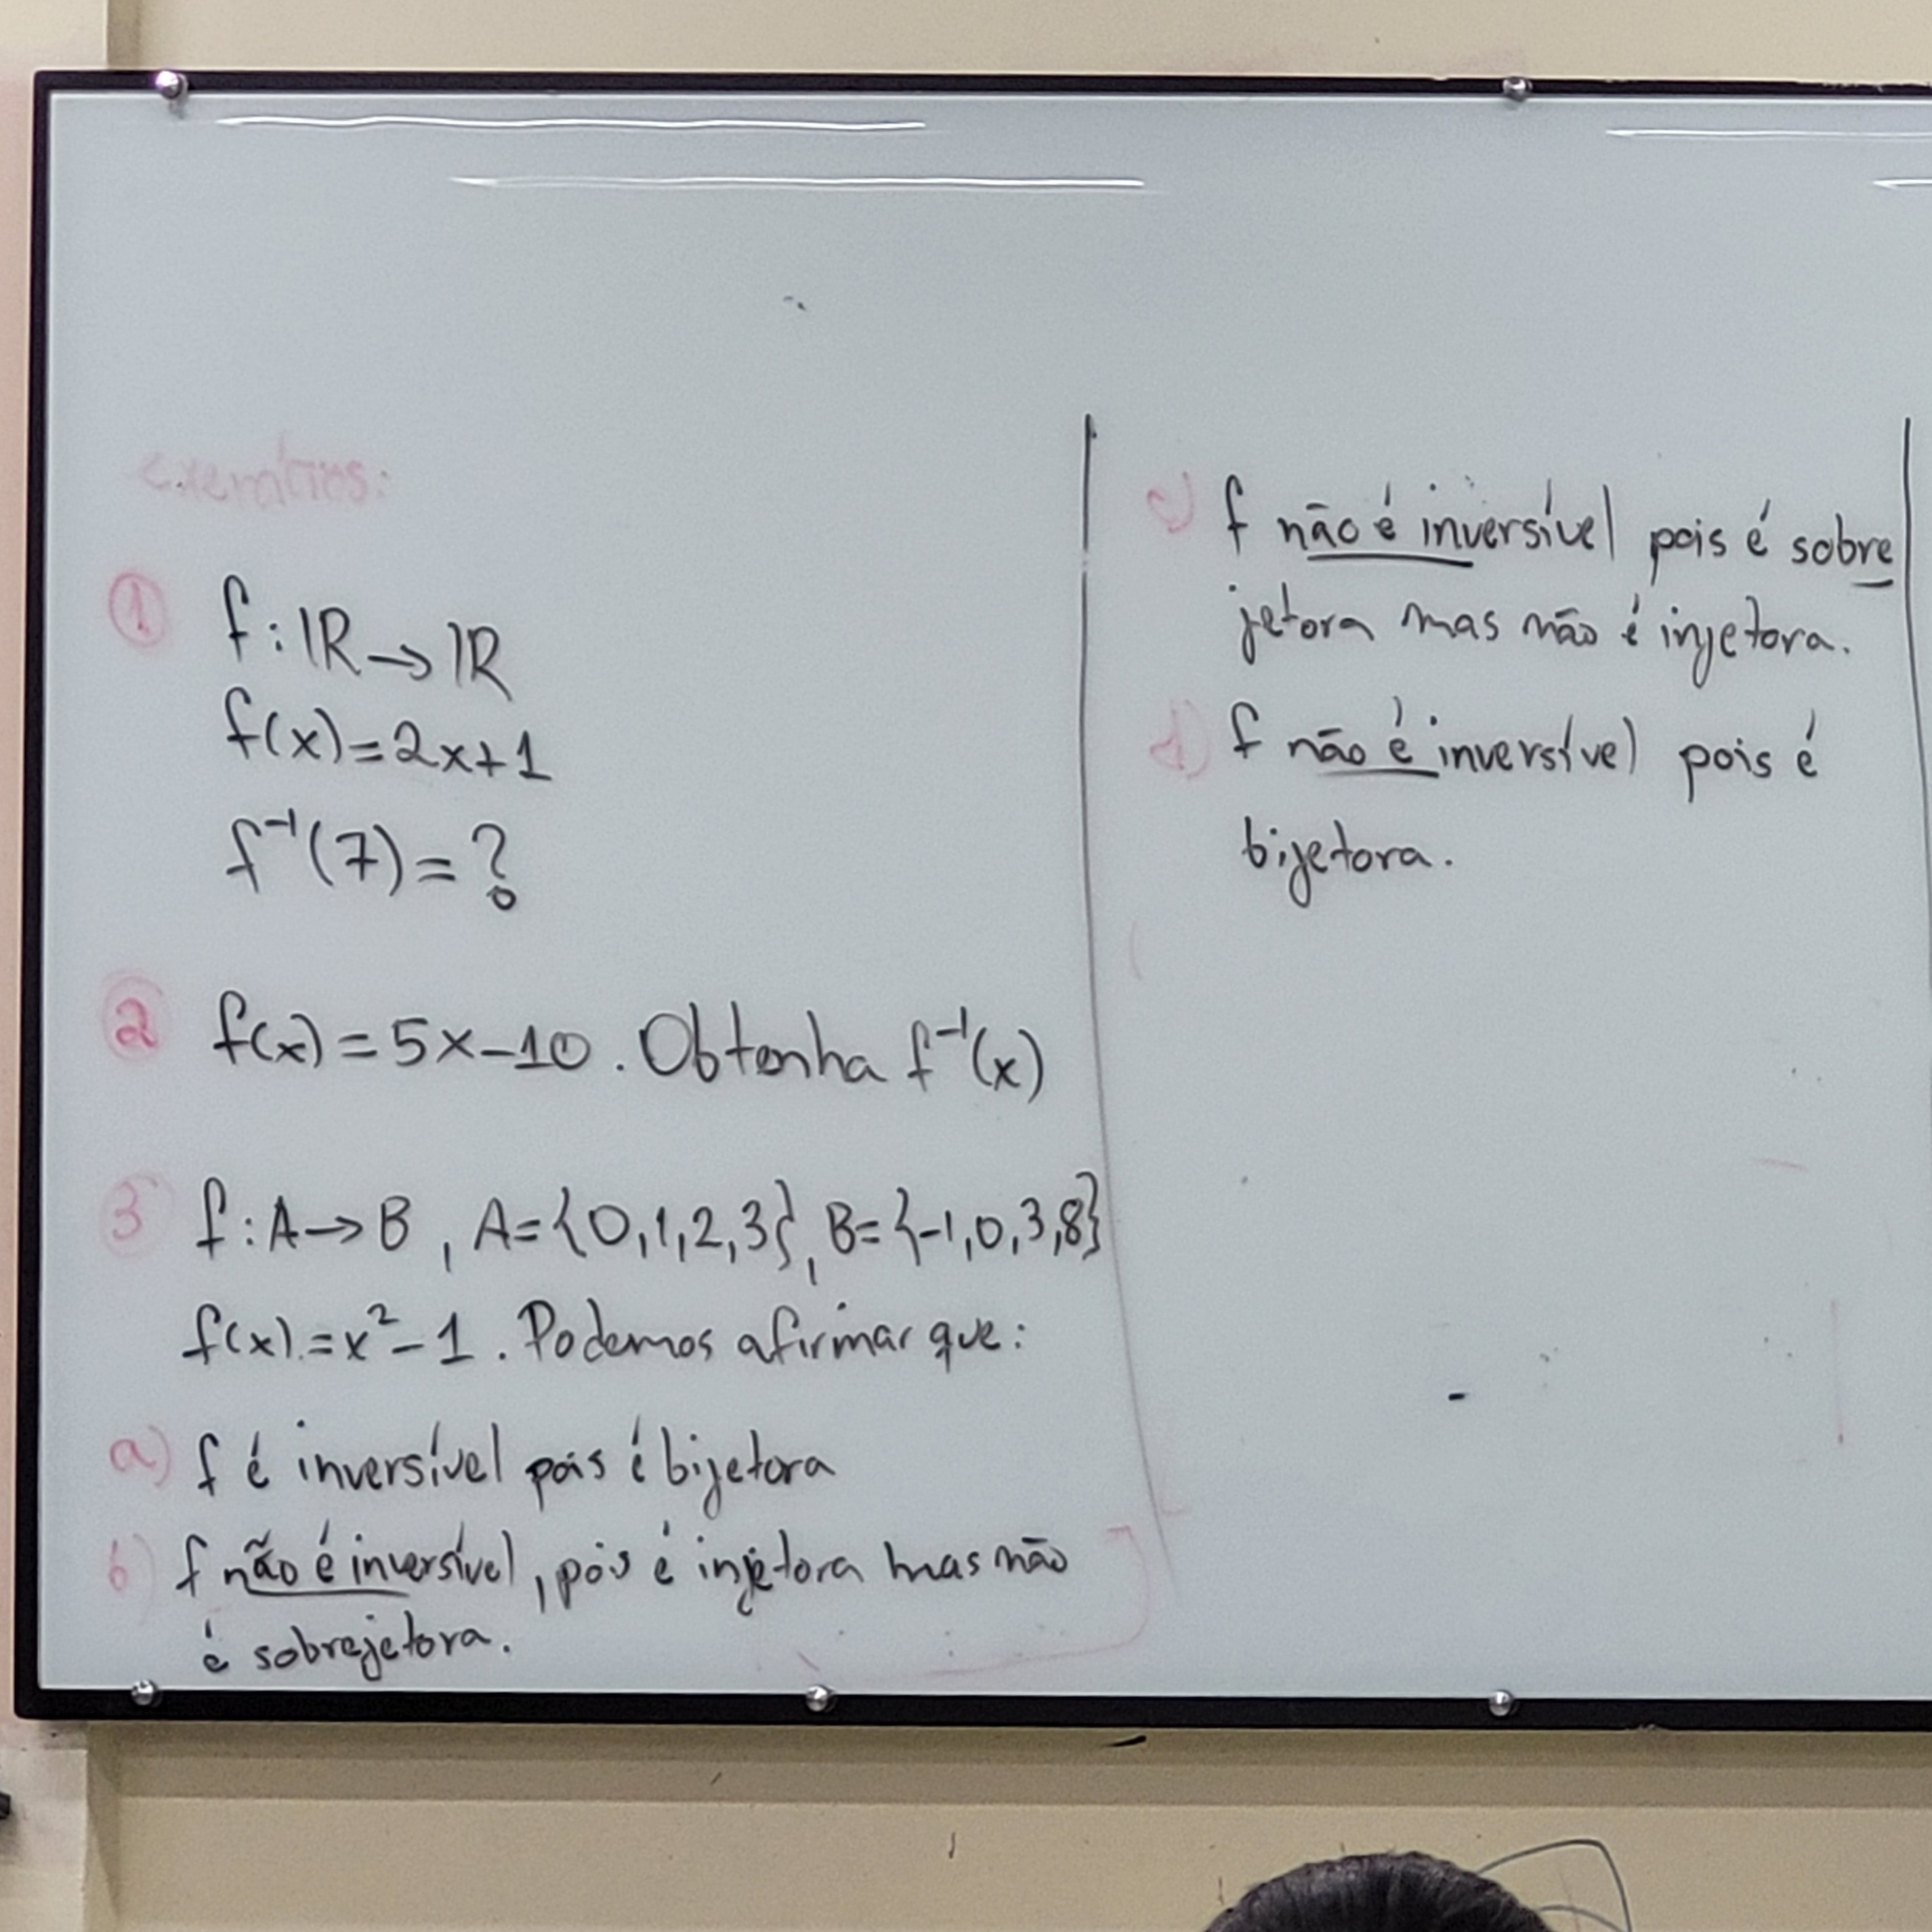 exercícios:
① f: ℝ → ℝ
f(x) = 2x + 1
f⁻¹(7) = ?
② f(x) = 5x - 10. Obtenha f⁻¹(x)
③ f: A → B, A = {0,1,2,3}, B = {-1,0,3,8}
f(x) = x² - 1. Podemos afirmar que:
a) f é inversível pois é bijetora
b) f não é inversível, pois é injetora mas não
é sobrejetora.
c) f não é inversível pois é sobre
jetora mas não é injetora.
d) f não é inversível pois é
bijetora.